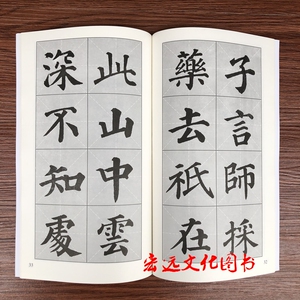 子言師採
藥去祇在
此山中雲
深不知處
宏远文化图书